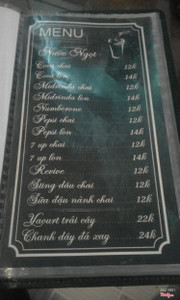 MENU
Nước Ngọt
Coca chai 12k
Coca lon 14k
Midrinda chai 12k
Midrinda lon 14k
Numberone 12k
Pepsi chai 12k
Pepsi lon 14k
7 up chai 12k
7 up lon 14k
Revive 12k
Sting dâu chai 12k
Sữa đậu nành chai 12k
Yaourt trái cây 22k
Chanh dây đá xay 24k